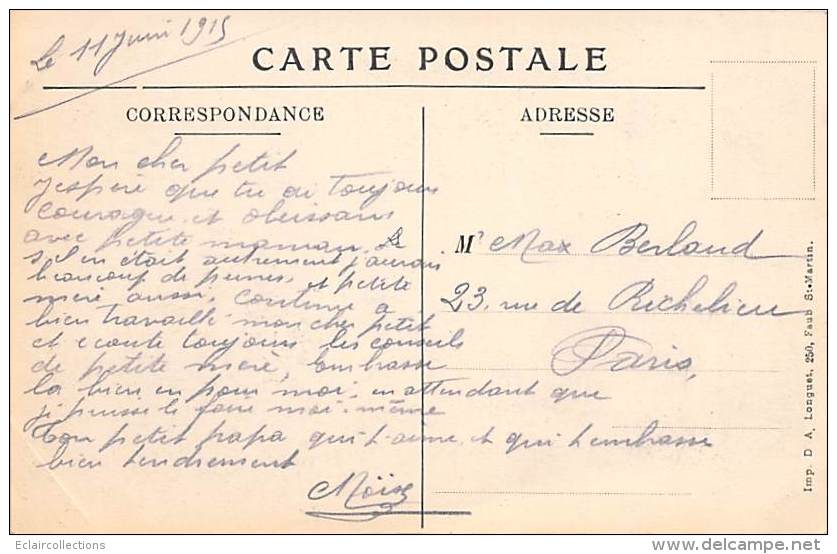 Le 11 Juin 1915
CARTE POSTALE
CORRESPONDANCE
ADRESSE
Mon cher petit
J'espere que tu ai toujours
courageux et obeissans
avec petite maman.
s'il en était autrement j'aurais
beaucoup de peines, et petite
mère aussi, continue a
bien travaillé mon cher petit
et ecoute toujours les conseils
de petite mère, embrasse
la bien en pour moi, en attendant que
je puisse le faire moi-même
Ton petit papa qui t'aime et qui t'embrasse
bien tendrement
Moïse
Mr Max Berland
23, rue de Richelieu
Paris,
Imp. D A. Longuet, 250, Faub St-Martin.
Eclaircollections
delcampe.net